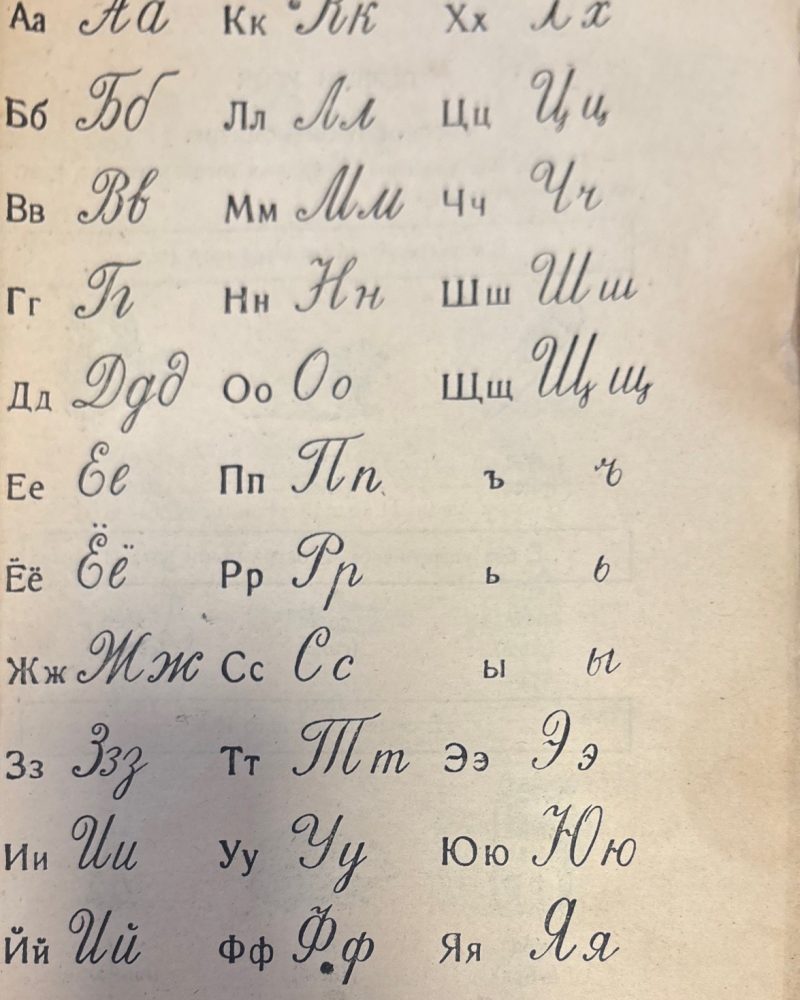 Аа Аа Кк Кк Хх Хх
Бб Бб Лл Лл Цц Цц
Вв Вв Мм Мм Чч Чч
Гг Гг Нн Нн Шш Шш
Дд Ддд Оо Оо Щщ Щщ
Ее Ее Пп Пп ъ ъ
Ёё Ёё Рр Рр ь ь
Жж Жж Сс Сс ы ы
Зз Ззз Тт Тт Ээ Ээ
Ии Ии Уу Уу Юю Юю
Йй Ий Фф Фф Яя Яя